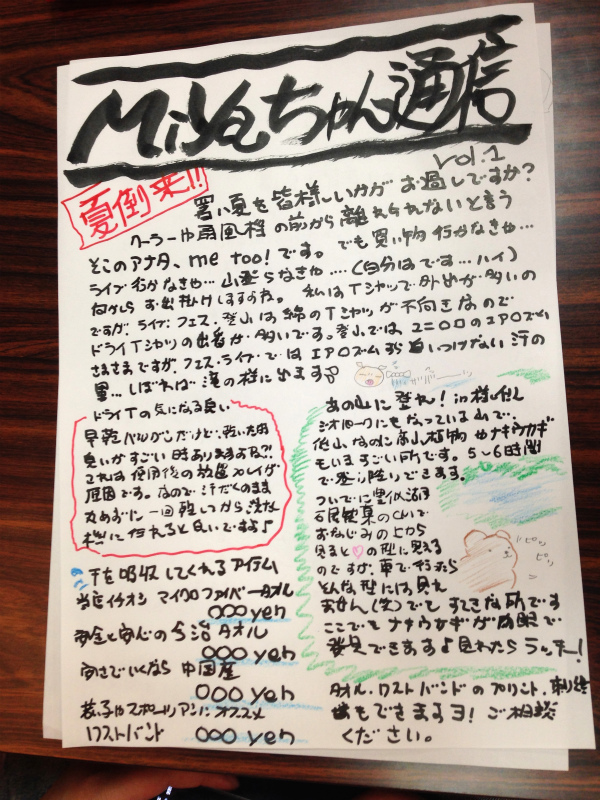 Miyaちゃん通信
vol.1
夏倒来!!
暑い夏を皆様いかがお過しですか?
クーラーや扇風機の前から離れられないと言う
そこのアナタ、me too!です。でも買い物行かなきゃ…
ライブ行かなきゃ…山登らなきゃ….(自分はです…ハイ)
何かしらお出掛けしますよね。私はTシャツで外出が多いの
ですが、ライブ・フェス・登山は綿のTシャツが不向きなので
ドライTシャツの出番が多いです。登山ではユニクロのエアリズム
さまさまですが、フェス・ライブではエアリズムすら追いつけない汗の
量…しぼれば滝の様に出ます
ドライTの気になる臭い
早乾バツグンだけど、乾いた時
臭いがすごい時ありますよね?!
これは使用後の放置プレイが
原因です。なので汗だくのまま
丸めずに一回乾してから洗濯
機に入れると良いですよ♪
汗を吸収してくれるアイテム
当店イチオシ マイクロファイバータオル
〇〇〇yen
安全と安心の今治タオル
〇〇〇yen
安さでいくなら中国産
〇〇〇yen
若子やスポーツマンにオススメ
リストバンド 〇〇〇yen
あの山に登れ! in 様似
ジオパークにもなっている山で、
低山なのに高山植物やナキウサギ
もいますごい所です。5~6時間
で登り降りできます。
ついでに豊似湖は
石屋製菓のCMで
おなじみの上から
見ると♡の型に見える
のですが、車で行ったら
そんな型には見え
ません(笑)でもすてきな所です
ここでもナキウサギが肉眼で
発見できます♪見れたらラッキー!
ピッ
ピッ
タオル・リストバンドのプリント、刺しゅう
もできますヨ!ご相談
ください。